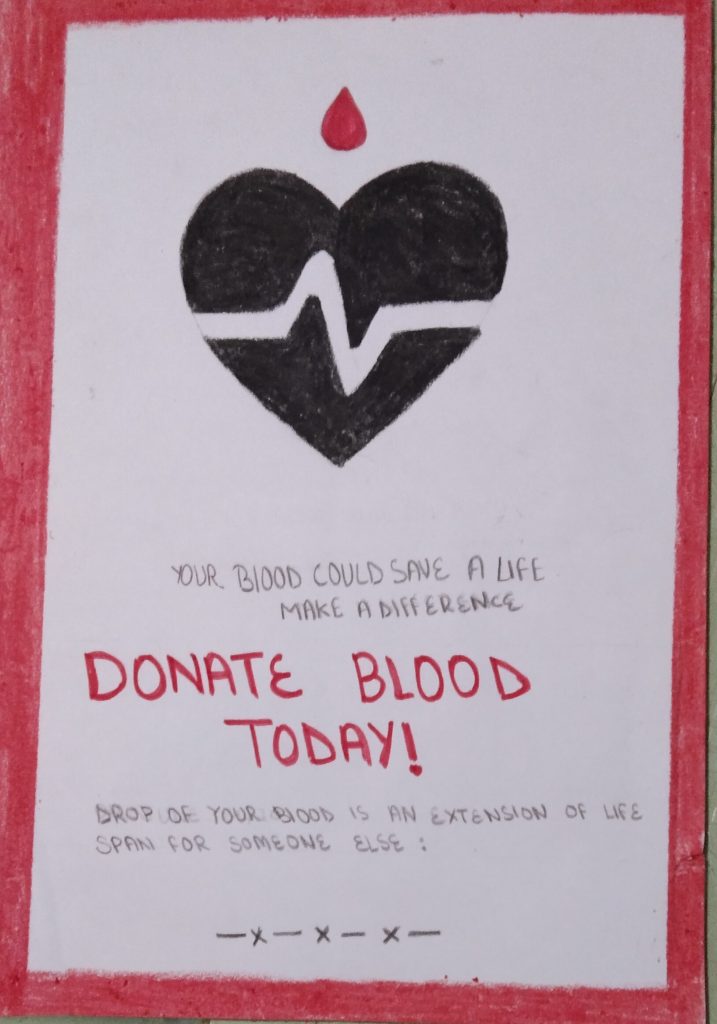 YOUR BLOOD COULD SAVE A LIFE
MAKE A DIFFERENCE
DONATE BLOOD
TODAY!
DROP OF YOUR BLOOD IS AN EXTENSION OF LIFE
SPAN FOR SOMEONE ELSE :
—x— x — x —